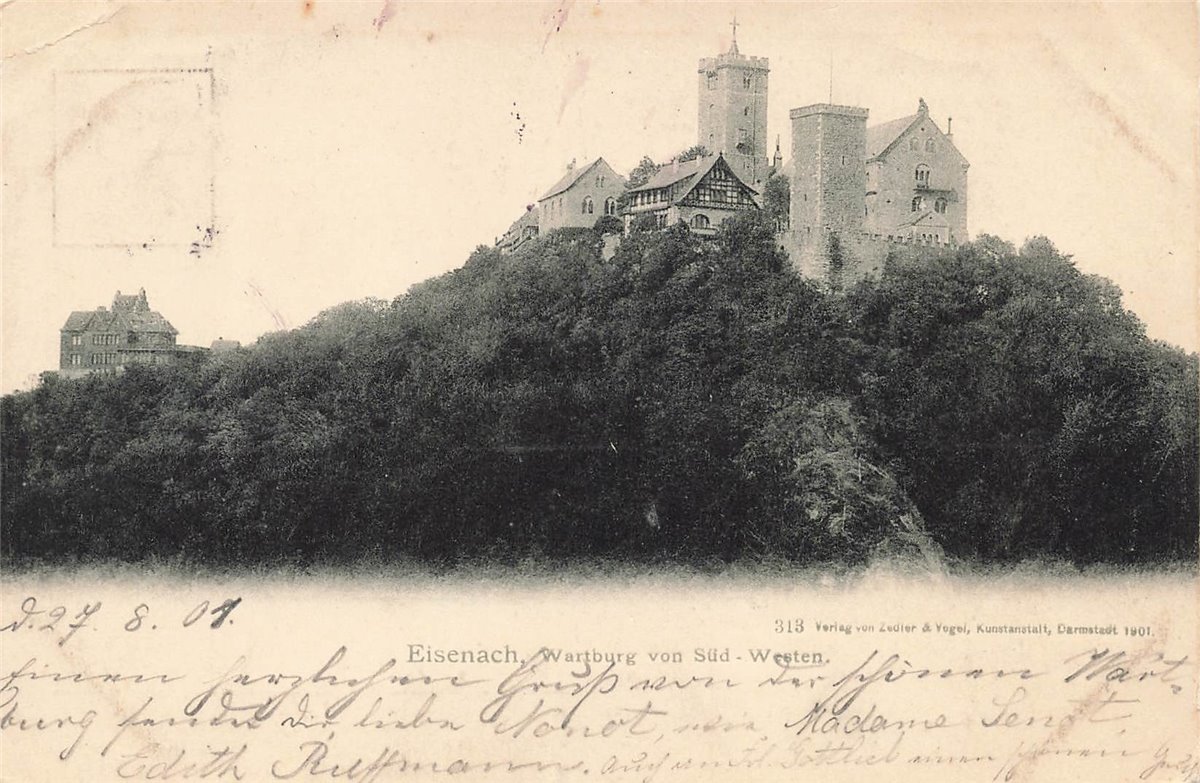 d. 27. 8. 01.
313 Verlag von Zedler & Vogel, Kunstanstalt, Darmstadt 1901.
Eisenach, Wartburg von Süd-Westen.
Einen herzlichen Gruß von der schönen Wart-
burg sendet dir, liebe Nonot, wie Madame Sendt,
Edith Ruffmann. Auch an Frl. Gottlieb einen schönen